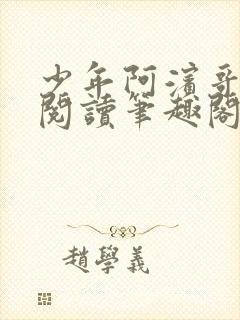 少年阿濱哥
閱讀筆趣閣
趙學義